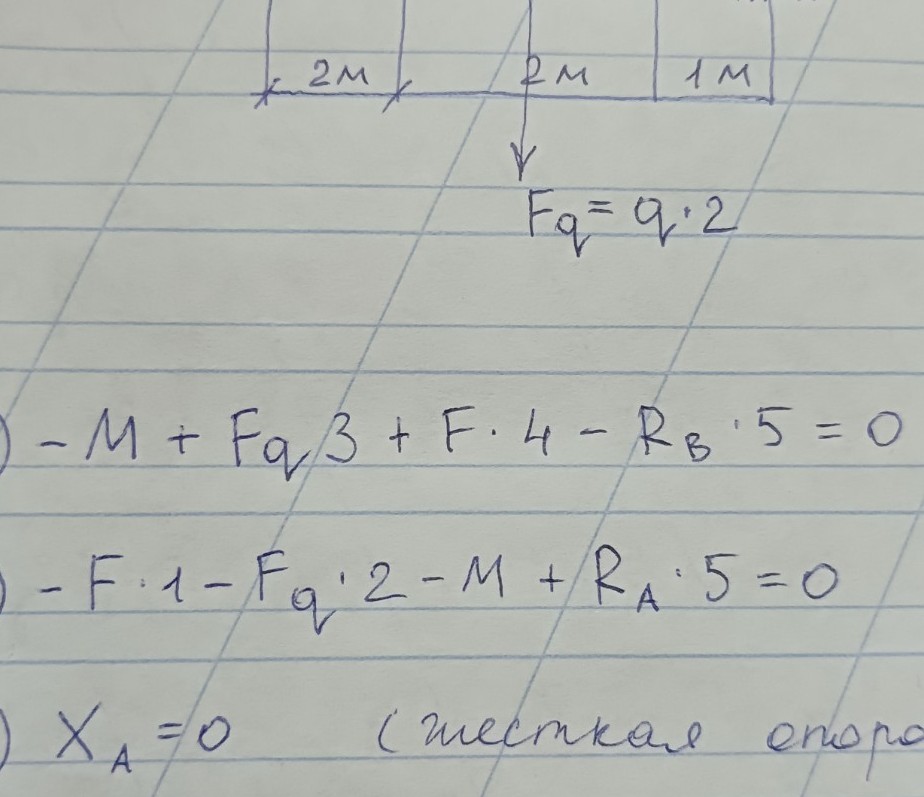 2м 2м 1м
Fq = q·2
) -M + Fq 3 + F·4 - RB·5 = 0
) -F·1 - Fq·2 - M + RA·5 = 0
) XA = 0 (жесткая опора